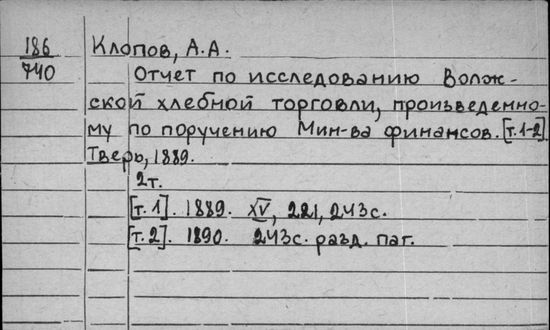 186
740
Клопов, А.А.
Отчет по исследованию Волж-
ской хлебной торговли, произведенно-
му по поручению Мин-ва финансов. [т.1-2].
Тверь, 1889.
2т.
[т.1]. 1889. XV, 221, 243с.
[т.2]. 1890. 243с. разд. паг.